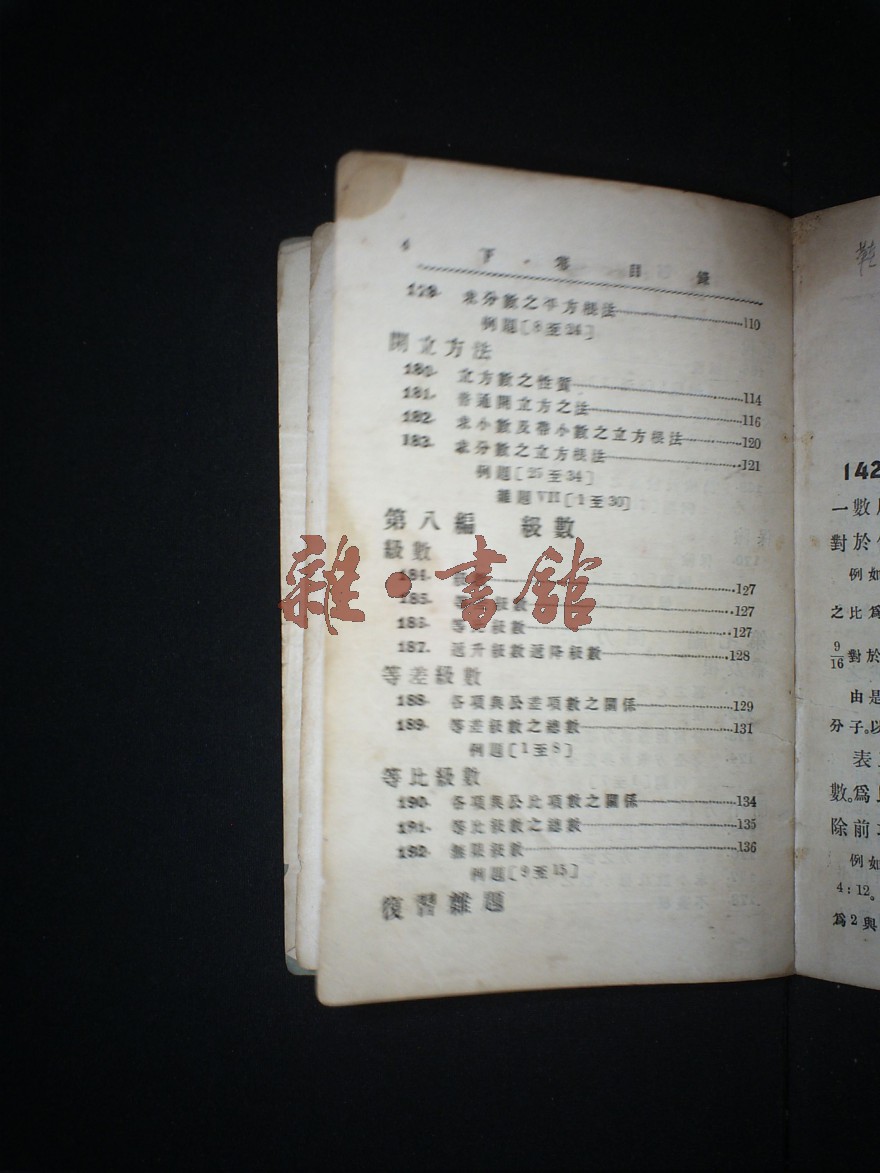 下 卷 目 錄
179. 求分數之平方根法 110
例題[8至24]
開立方法
180. 立方數之性質 114
181. 普通開立方之法 116
182. 求小數及帶小數之立方根法 120
183. 求分數之立方根法 121
例題[25至34]
雜題 VII [1至30]
第八編 級數
級數
184. 127
185. 級數 127
186. 等比級數 127
187. 遞升級數遞降級數 128
雜·書館
等差級數
188. 各項與公差項數之關係 129
189. 等差級數之總數 131
例題[1至8]
等比級數
190. 各項與公比項數之關係 134
191. 等比級數之總數 135
192. 無限級數 136
例題[9至15]
復習雜題
142
一數
對於
例如
之比爲
9/16對於
由是
分子。以
表
數。爲
除前
例如
4:12。
爲2與